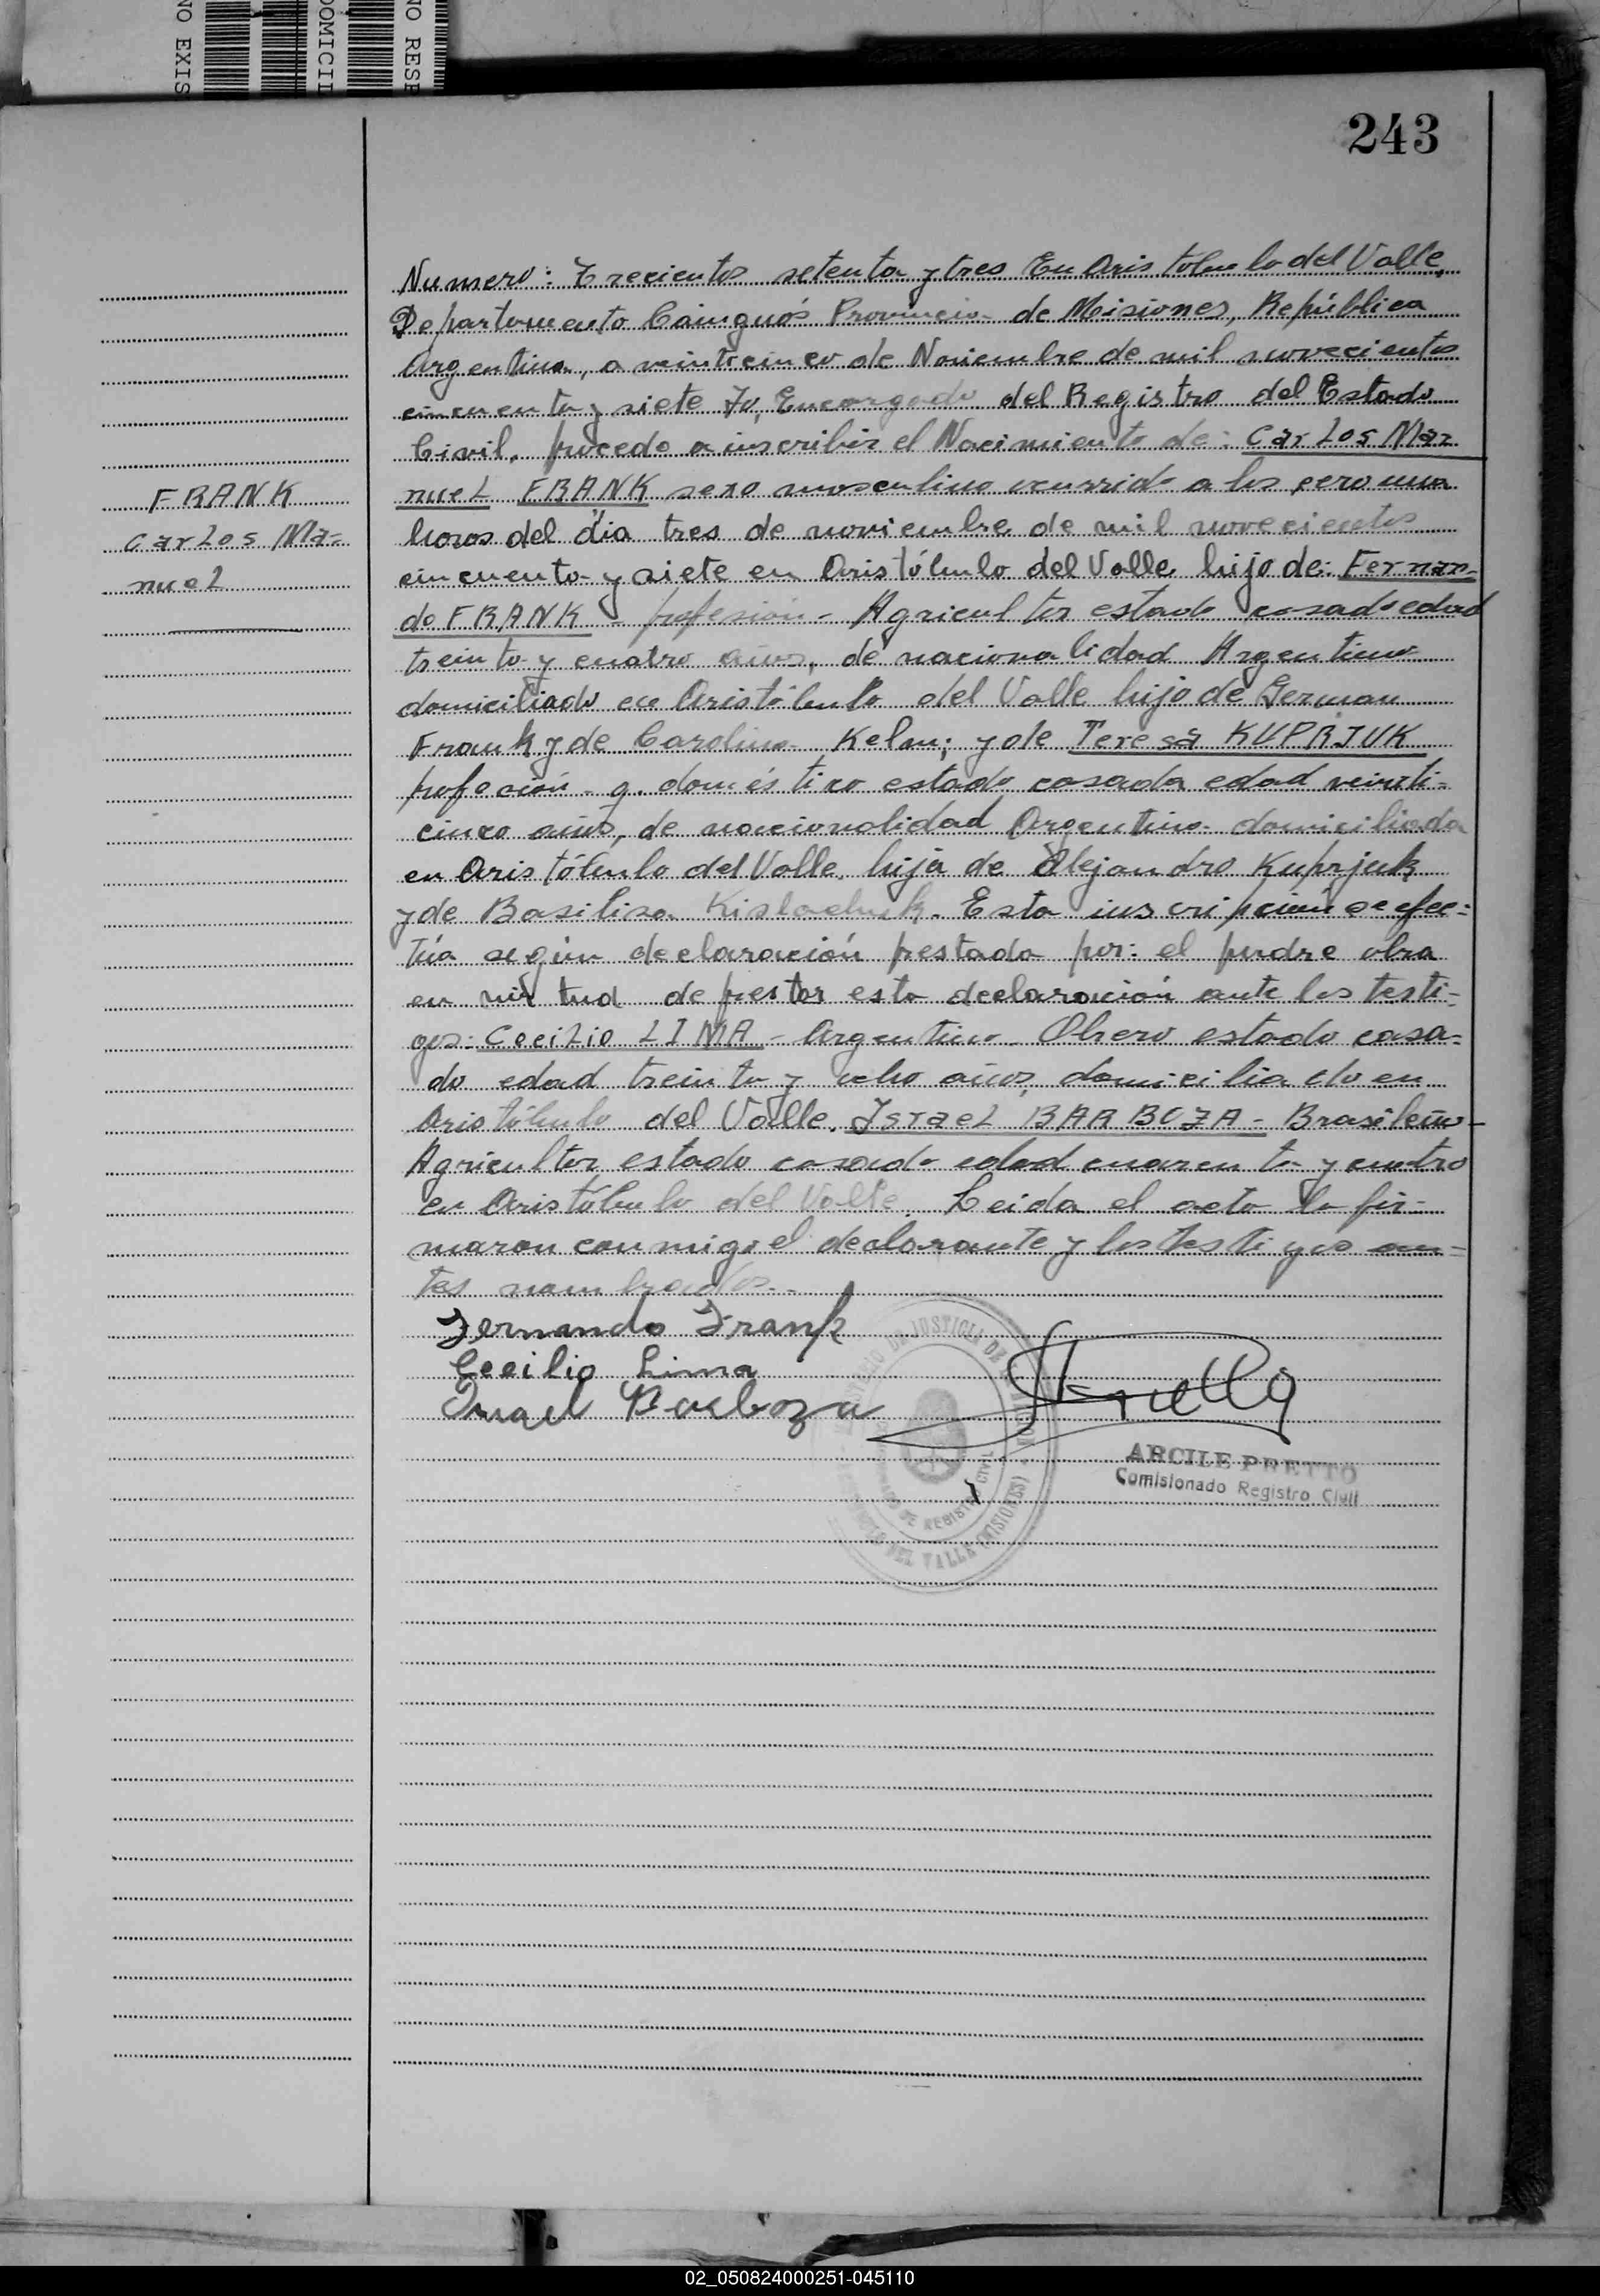 NO EXIS
DOMICIL
NO RESP
243
FRANK
Carlos Ma=
nuel
Numero: Trecientos setenta y tres En Aristóbulo del Valle,
Departamento Cainguás Provincia de Misiones, República
Argentina, a veinticinco de Noviembre de mil novecientos
cincuenta y siete Yo, Encargado del Registro del Estado
Civil, procedo a inscribir el Nacimiento de: Carlos Ma=
nuel FRANK sexo masculino ocurrido a las cero una
horas del día tres de noviembre de mil novecientos
cincuenta y siete en Aristóbulo del Valle hijo de: Fernan-
do FRANK - profesión - Agricultor estado casado edad
treinta y cuatro años, de nacionalidad Argentino
domiciliado en Aristóbulo del Valle hijo de German
Frank y de Carolina Kelm; y de Teresa KUPRJUK
profesión - q. doméstico estado casada edad veinti=
cinco años, de nacionalidad Argentina domiciliada
en Aristóbulo del Valle, hija de Alejandro Kuprjuk
y de Basilisa Kislachuk. Esta inscripción se efec=
túa según declaración prestada por: el padre obra
en virtud de prestar esta declaración ante los testi=
gos: Cecilio LIMA - Argentino - Obrero estado casa=
do edad treinta y ocho años, domiciliado en
Aristóbulo del Valle, Israel BARBOZA - Brasileño -
Agricultor estado casado edad cuarenta y cuatro
en Aristóbulo del Valle. Leida el acta la fir=
maron conmigo el declarante y los testigos an=
tes nombrados.--
Fernando Frank
Cecilio Lima
Israel Barboza
MINISTERIO DE JUSTICIA DE LA NACION
REGISTRO CIVIL
DEL VALLE (MISIONES)
ARCILE PRETTO
Comisionado Registro Civil
02_050824000251-045110